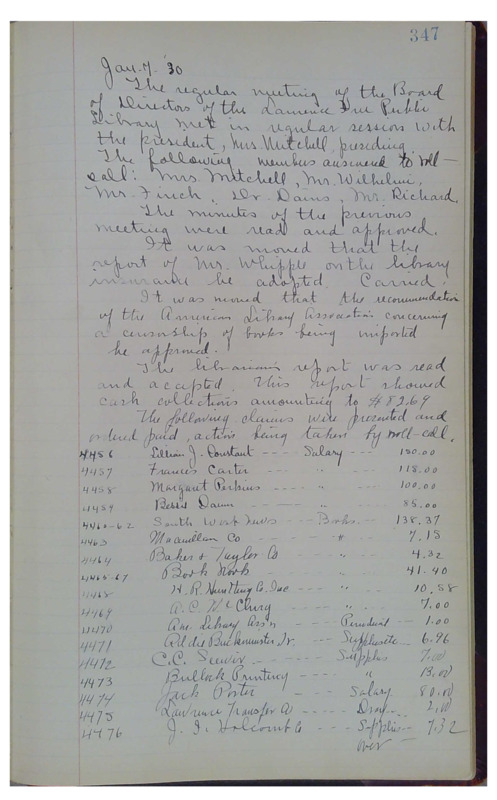 347
Jan. 7. '30
The regular meeting of the Board
of Directors of the Lawrence Free Public
Library met in regular session with
the president, Mrs. Mitchell, presiding.
The following members answered to roll-
call: Mrs. Mitchell, Mr. Wilhelmi,
Mr. Finch, Dr. Dains, Mr. Richard.
The minutes of the previous
meeting were read and approved.
It was moved that the
report of Mr. Whipple on the library
insurance be adopted. Carried.
It was moved that the recommendation
of the American Library Association concerning
a censorship of books being imported
be approved.
The librarian's report was read
and accepted. This report showed
cash collections amounting to $82.69
The following claims were presented and
ordered paid, action being taken by roll-call.
4456 Lillian J. Constant ---- Salary --- 150.00
4457 Frances Carter ---- " --- 118.00
4458 Margaret Perkins ---- " --- 100.00
4459 Bessie --- " --- 85.00
4460-62 South --- Books --- 138.37
4463 Macmillan Co --- " 7.15
4464 Baker & Taylor Co --- " -- 4.32
4465-67 Book Nook --- " -- 41.40
4468 H. R. Huntting Co. Inc --- " -- 10.58
4469 A. C. McClurg --- " -- 7.00
4470 Am Library Ass'n --- -- 1.00
4471 Addie Buckmaster Jr. --- 6.96
4472 C. C. --- Supplies 7.00
4473 Bullock Printing --- " 13.00
4474 Jack Porter --- Salary 80.00
4475 Lawrence Transfer Co --- Dray -- 2.00
4476 J. I. Holcomb Co --- Supplies -- 7.32
over